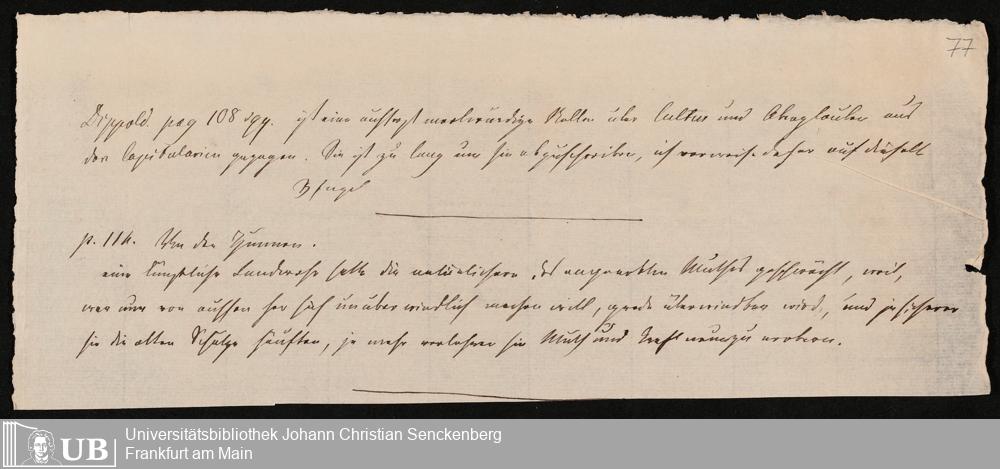 77
Dippold. pag 108 sqq. ist eine äusserst merkwürdige Stelle über Cultus und Aberglauben aus
den Capitularien gezogen. Sie ist zu lang um sie abzuschreiben, ich verweise daher auf dieselbe
p. 114. Von den Hunnen.
eine künstliche Landwehr hatte die natürlichere, des angeerbten Muthes geschwächt, weil,
wer nur von aussen her sich unüberwindlich machen will, grade überwindbar wird, und je sicherer
sie die alten Schätze häuften, je mehr verlohren sie Muth und Kraft neue zu erobern.
UB
Universitätsbibliothek Johann Christian Senckenberg
Frankfurt am Main